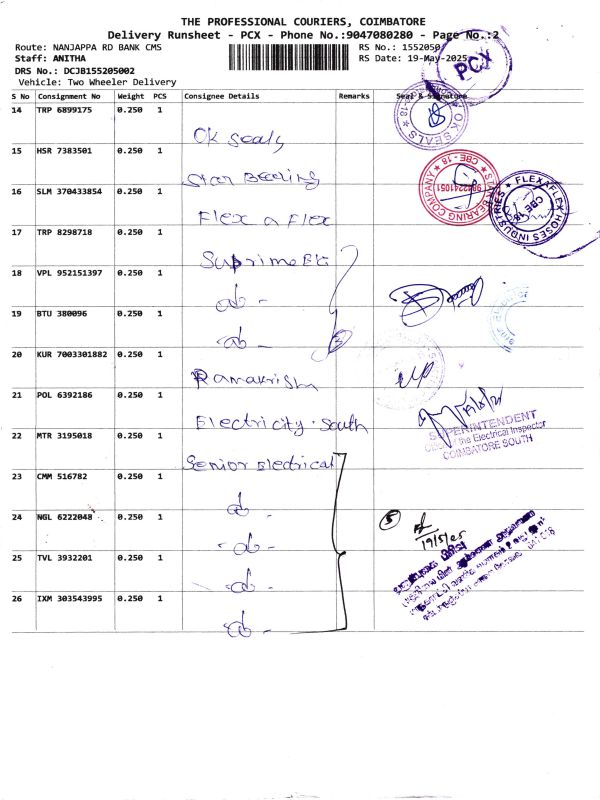 THE PROFESSIONAL COURIERS, COIMBATORE
Delivery Runsheet - PCX - Phone No.:9047080280 - Page No.:2
Route: NANJAPPA RD BANK CMS
RS No.: 1552050
Staff: ANITHA
RS Date: 19-May-2025
DRS No.: DCJB155205002
Vehicle: Two Wheeler Delivery
PCX
S No Consignment No Weight PCS Consignee Details Remarks Seal & Signature
14 TRP 6899175 0.250 1 OK Seals
OK SEALS
15 HSR 7383501 0.250 1 Star Bearing
STAR BEARING COMPANY
CBE - 18
9842241051
16 SLM 370433854 0.250 1 Flex a Flex
FLEXAFLEX HOSES INDUSTRIES
CBE
18
17 TRP 8298718 0.250 1 Suprime Ele
18 VPL 952151397 0.250 1 do -
19 BTU 380096 0.250 1 - do -
3
20 KUR 7003301882 0.250 1 Ramakrish
21 POL 6392186 0.250 1 Electricity. South
SUPERINTENDENT
of the Electrical Inspector
COIMBATORE SOUTH
22 MTR 3195018 0.250 1 Senior Electrical
23 CMM 516782 0.250 1 do -
24 NGL 6222048 0.250 1 - do -
5
19/5/25
25 TVL 3932201 0.250 1 - do -
26 IXM 303543995 0.250 1 do -